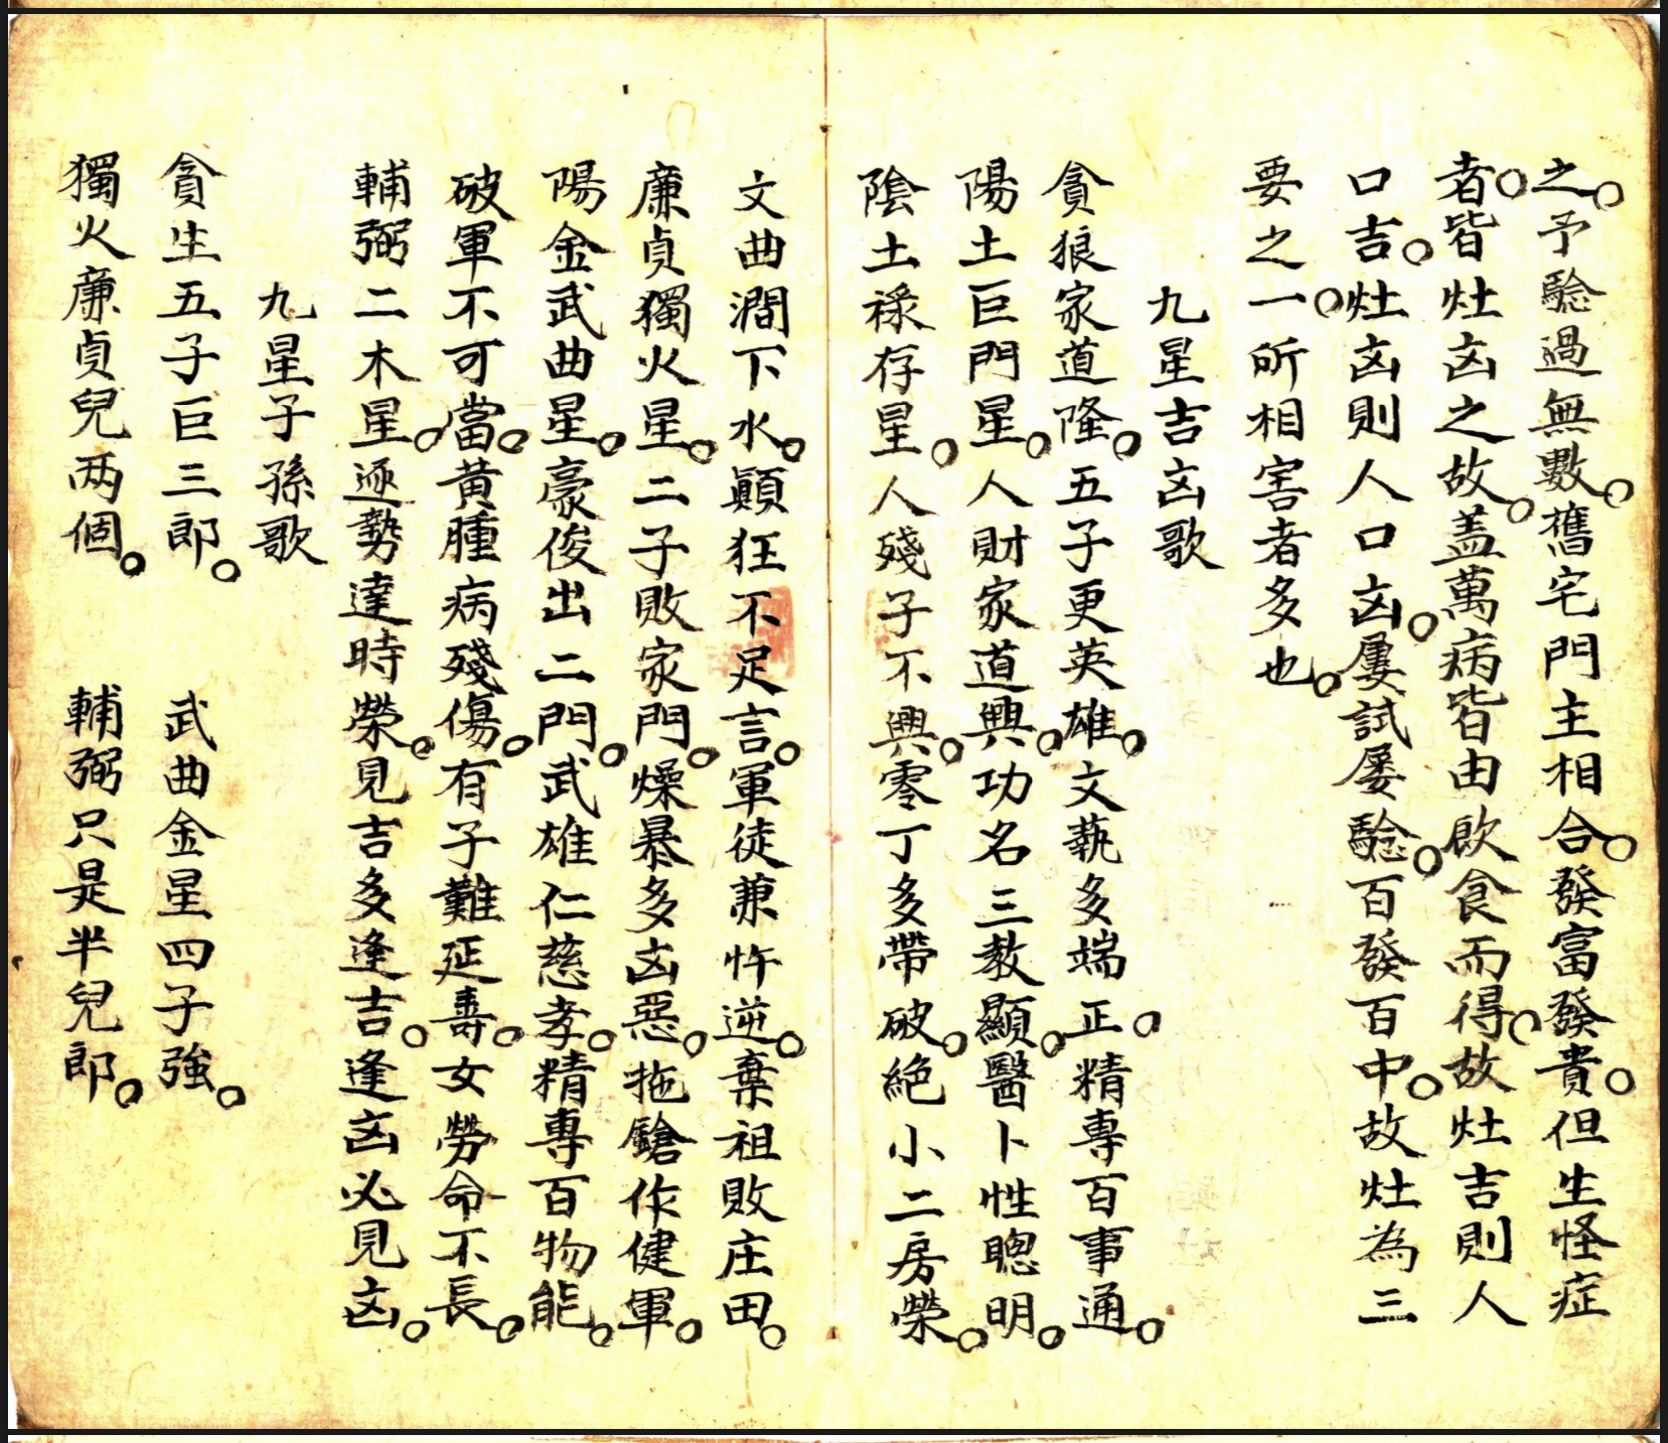 之。予騐過無數。舊宅門主相合。發富發貴。但生怪症
者。皆灶凶之故。盖萬病皆由飲食而得。故灶吉則人
口吉。灶凶則人口凶。屢試屢騐。百發百中。故灶為三
要之一。所相害者多也。
九星吉凶歌
貪狼家道隆。五子更英雄。文藝多端正。精專百事通。
陽土巨門星。人財家道興。功名三教顯。醫卜性聰明。
陰土祿存星。人殘子不興。零丁多帶破。絕小二房榮。
文曲澗下水。顛狂不足言。軍徒兼忤逆。棄祖敗庄田。
廉貞獨火星。二子敗家門。燥暴多凶惡。拖鎗作健軍。
陽金武曲星。豪俊出二門。武雄仁慈孝。精專百物能。
破軍不可當。黃腫病殘傷。有子難延壽。女勞命不長。
輔弼二木星。逐勢達時榮。見吉多逢吉。逢凶必見凶。
九星子孫歌
貪生五子巨三郎。武曲金星四子強。
獨火廉貞兒两個。輔弼只是半兒郎。